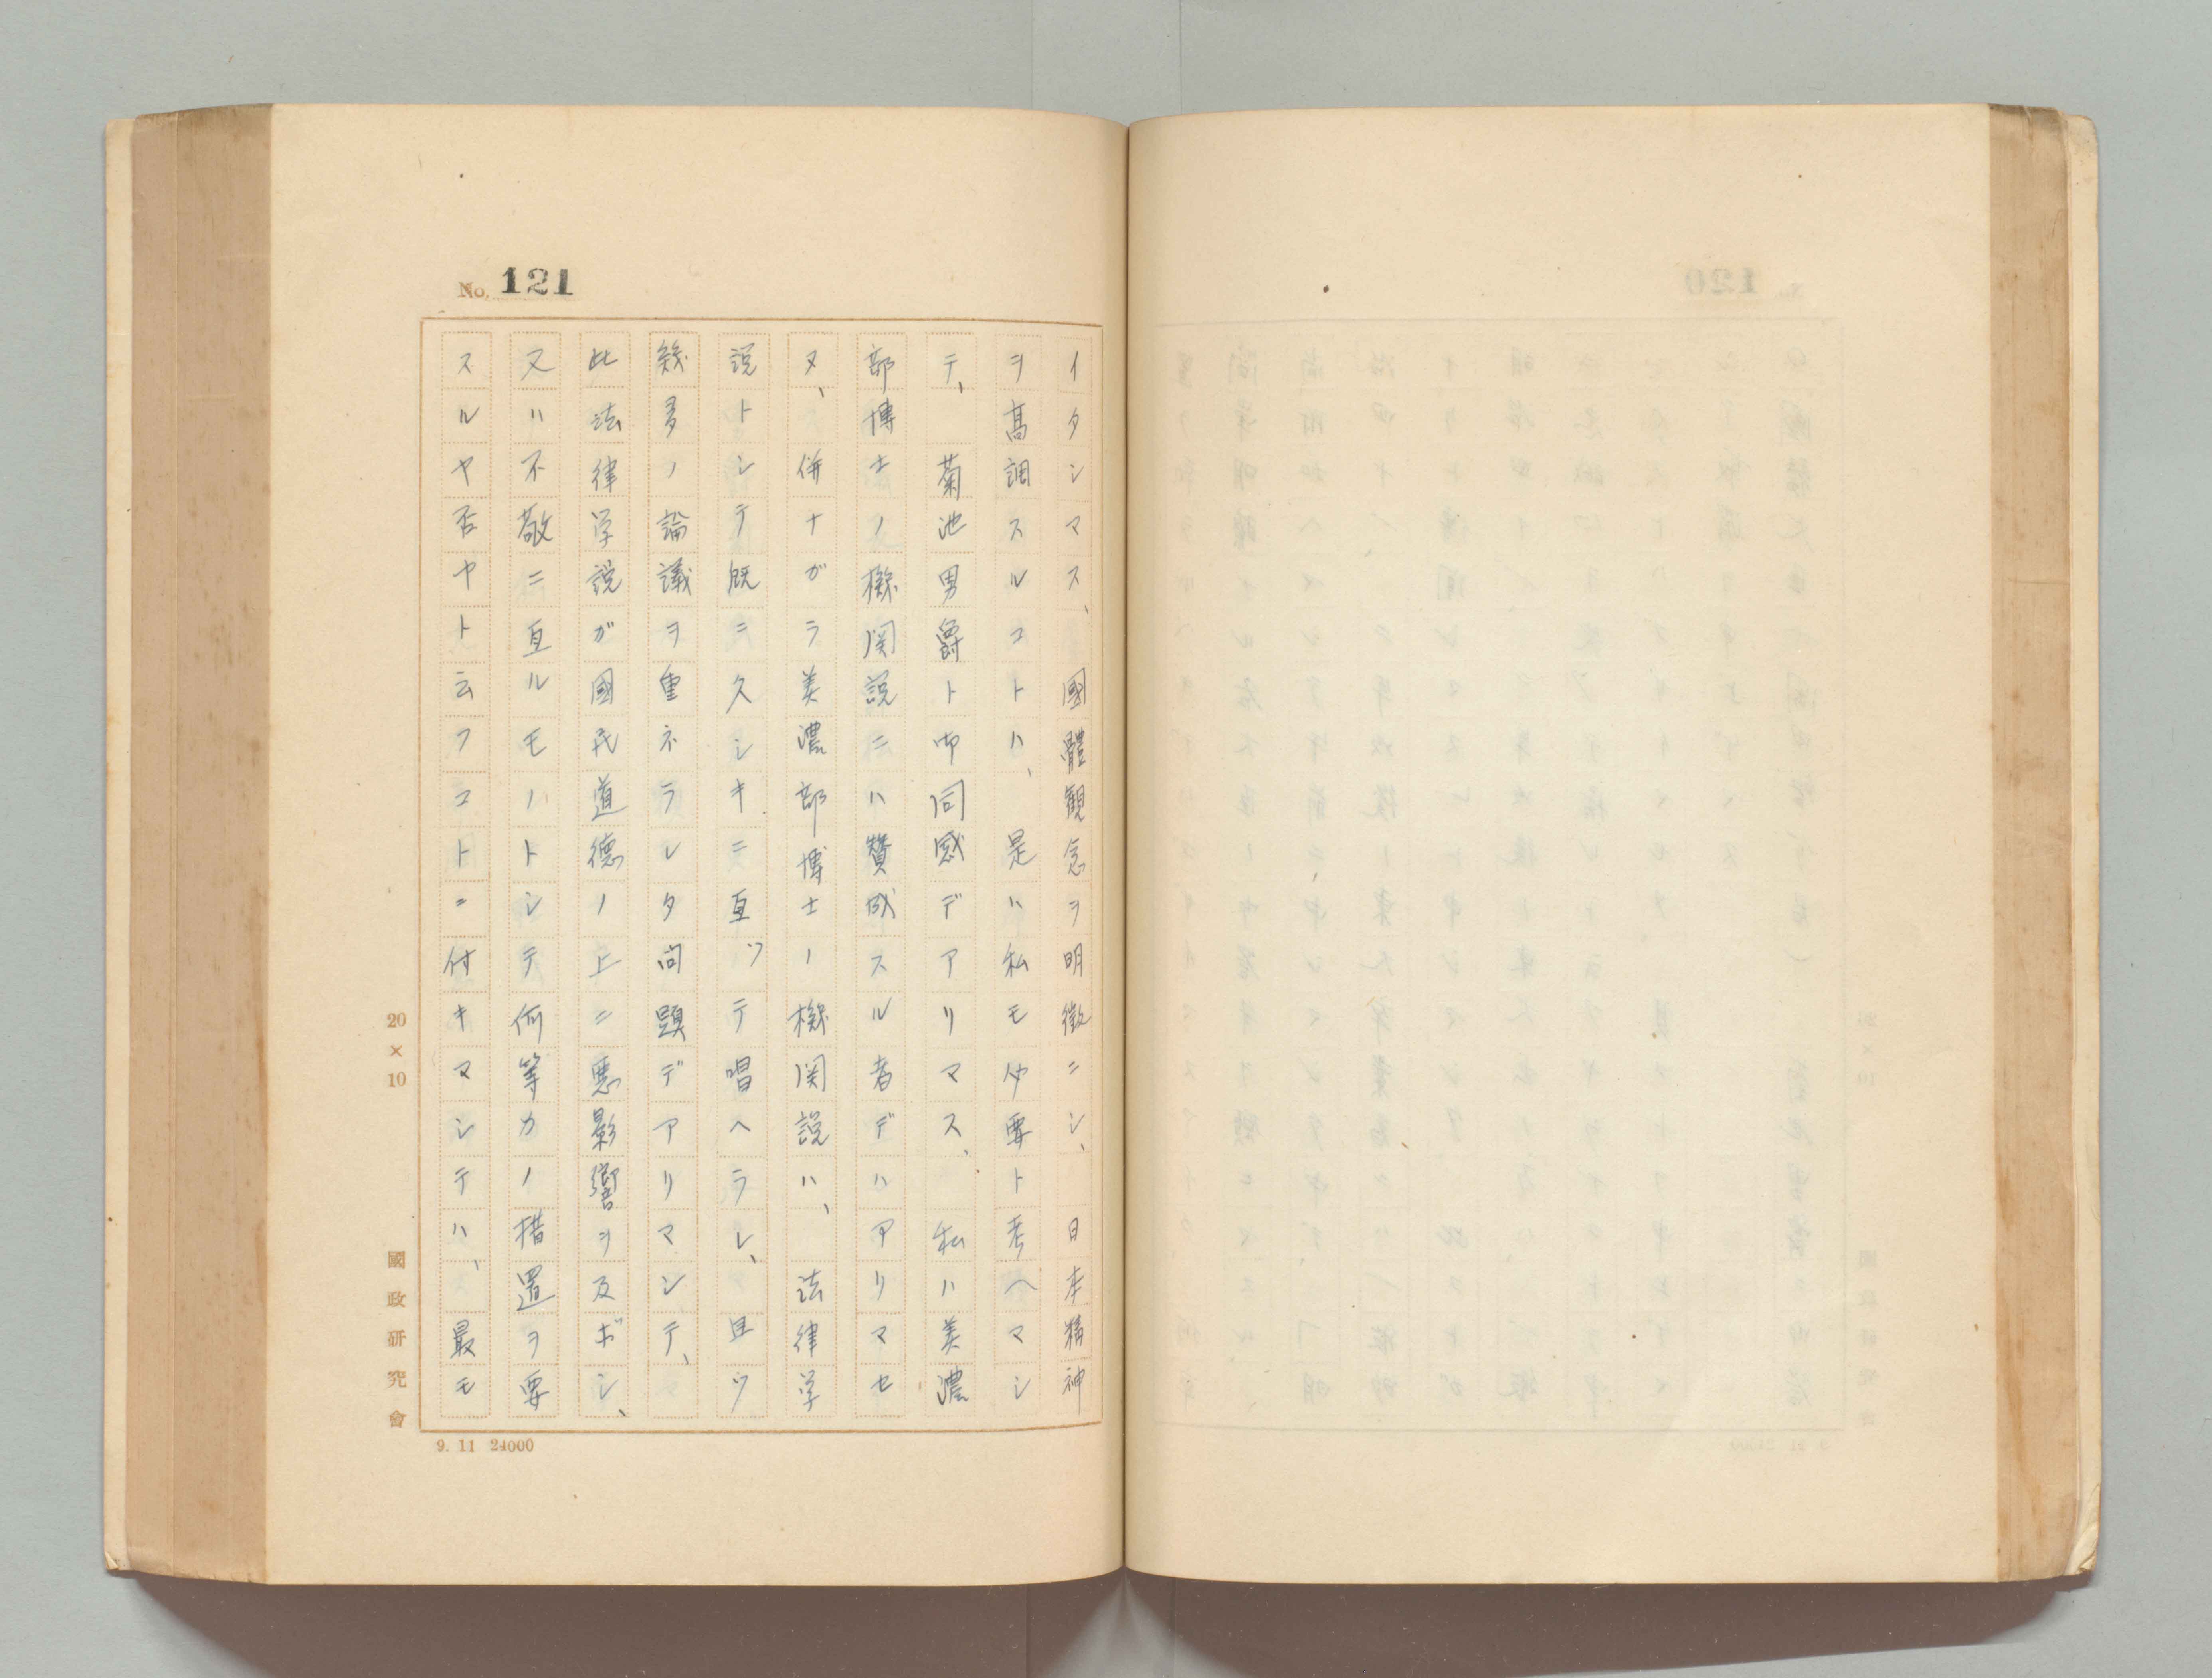 No. 121
イタシマス、　國體観念ヲ明徴ニシ、　日本精神
ヲ高調スルコトハ、　是ハ私モ必要ト考ヘマシ
テ、　菊池男爵ト御同感デアリマス、　私ハ美濃
部博士ノ機関説ニハ賛成スル者デハアリマセ
ヌ、併ナガラ美濃部博士ノ機関説ハ、　法律学
説トシテ既ニ久シキニ亙ツテ唱ヘラレ、且ツ
幾多ノ論議ヲ重ネラレタ問題デアリマシテ、
此法律学説ガ國民道徳ノ上ニ悪影響ヲ及ボシ、
又ハ不敬ニ亙ルモノトシテ何等カノ措置ヲ要
スルヤ否ヤト云フコトニ付キマシテハ、　最モ
20×10
國政研究會
9. 11 24000